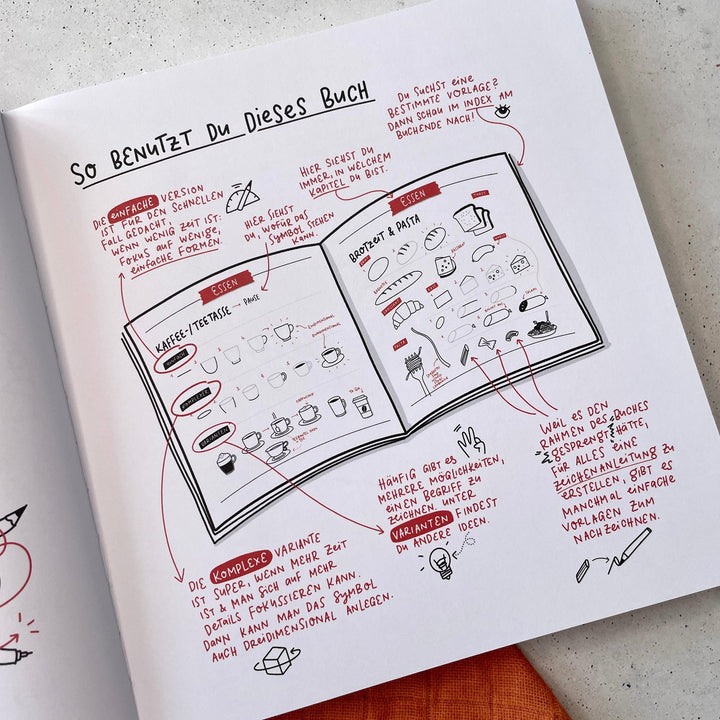 SO BENUTZT DU DIESES BUCH
DU SUCHST EINE
BESTIMMTE VORLAGE?
DANN SCHAU IM INDEX AM
BUCHENDE NACH!
HIER SIEHST DU
IMMER, IN WELCHEM
KAPITEL DU BIST.
DIE EINFACHE VERSION
IST FÜR DEN SCHNELLEN
FALL GEDACHT,
WENN WENIG ZEIT IST:
FOKUS AUF WENIGE,
EINFACHE FORMEN.
HIER SIEHST
DU, WOFÜR DAS
SYMBOL STEHEN
KANN.
ESSEN
KAFFEE-/TEETASSE → PAUSE
EINFACH
KOMPLEXER
VARIANTEN
TO GO
ESSEN
BROTZEIT & PASTA
TOAST
BROT
BAGUETTE
PASTA
HÄUFIG GIBT ES
MEHRERE MÖGLICHKEITEN,
EINEN BEGRIFF ZU
ZEICHNEN. UNTER
VARIANTEN FINDEST
DU ANDERE IDEEN.
WEIL ES DEN
RAHMEN DES BUCHES
GESPRENGT HÄTTE,
FÜR ALLES EINE
ZEICHENANLEITUNG ZU
ERSTELLEN, GIBT ES
MANCHMAL EINFACHE
VORLAGEN ZUM
NACHZEICHNEN.
DIE KOMPLEXE VARIANTE
IST SUPER, WENN MEHR ZEIT
IST & MAN SICH AUF MEHR
DETAILS FOKUSSIEREN KANN.
DANN KANN MAN DAS SYMBOL
AUCH DREIDIMENSIONAL ANLEGEN.